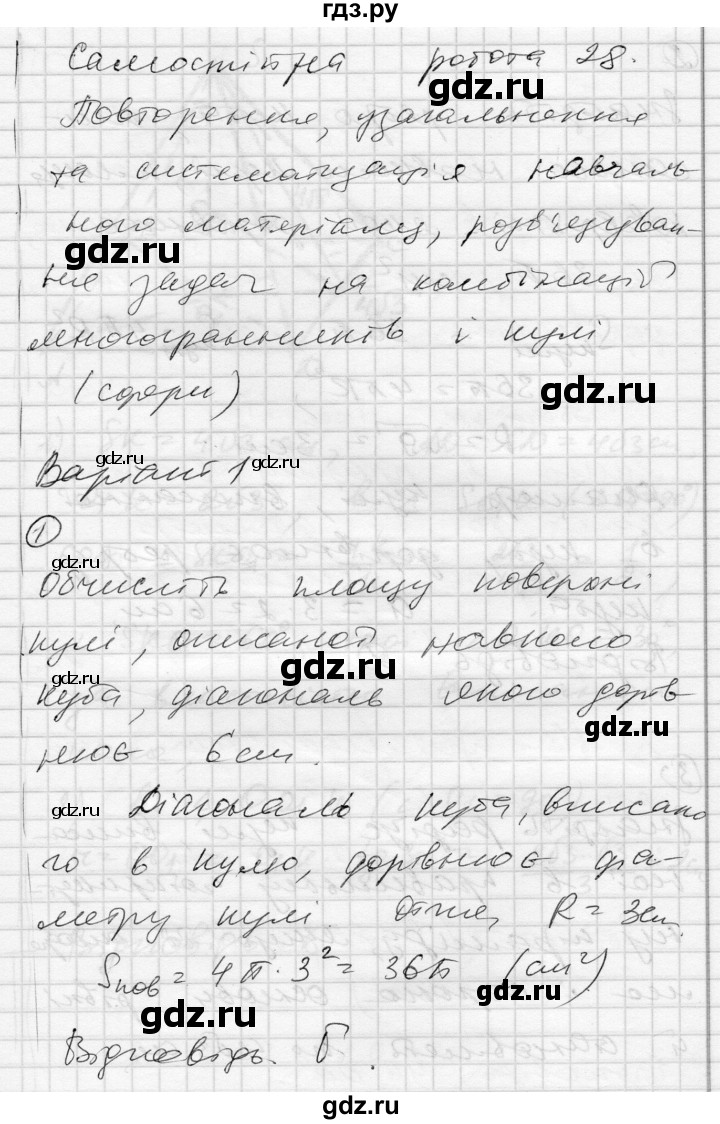 гдз.ру
Самостійна робота 28.
gdz.ru
Повторення, узагальнення
та систематизація навчаль
gdz.ru
ного матеріалу, розв'язуван-
gdz.ru
ня задач на комбінації
многогранників і кулі
(сфери)
gdz.ru
Варіант 1
gdz.ru
gdz.ru
1
gdz.ru
Обчисліть площу поверхні
кулі, описаної навколо
gdz.ru
куба, діагональ якого дорів
gdz.ru
нює 6 см.
Діагональ куба, вписано
gdz.ru
го в кулю, дорівнює діа-
метру кулі. Отже, R = 3см.
Sпов = 4π · 3² = 36π (см²)
gdz.ru
gdz.ru
Відповідь. Г.
gdz.ru